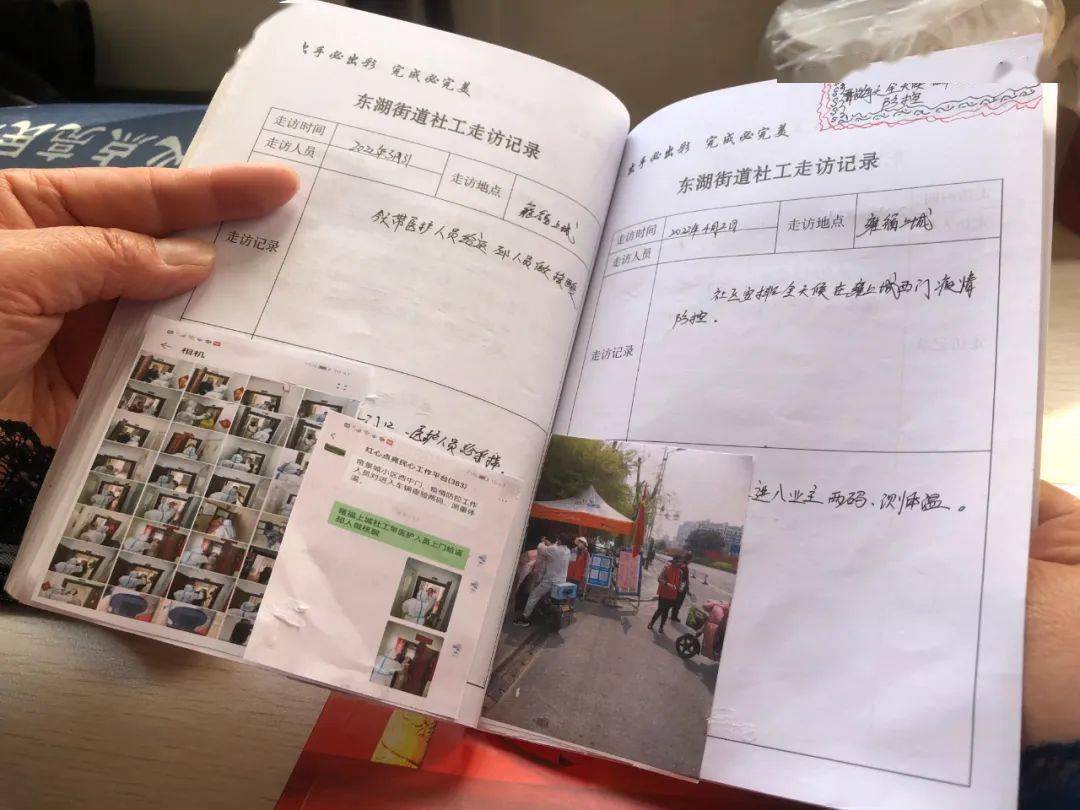 出手必出彩 完成必完美
东湖街道社工走访记录
走访时间
2022年3月31
走访地点
雍福上城
走访人员
走访记录
领带医护人员给返 人员做核酸
医护人员给采样.
相机
红心点亮民心工作平台(383)
南景城小区西中门，疫情防控工作
人员对进入车辆查验两码、测量体
温。
雍福上城社工带医护人员上门给返
超人做核酸
出手必出彩 完成必完美
东湖街道社工走访记录
走访时间
2022年4月2日
走访地点
雍福上城
走访人员
走访记录
社区安排全天候在雍上城西门疫情
防控.
进入业主两码、测体温。
全天候
防控
点亮民